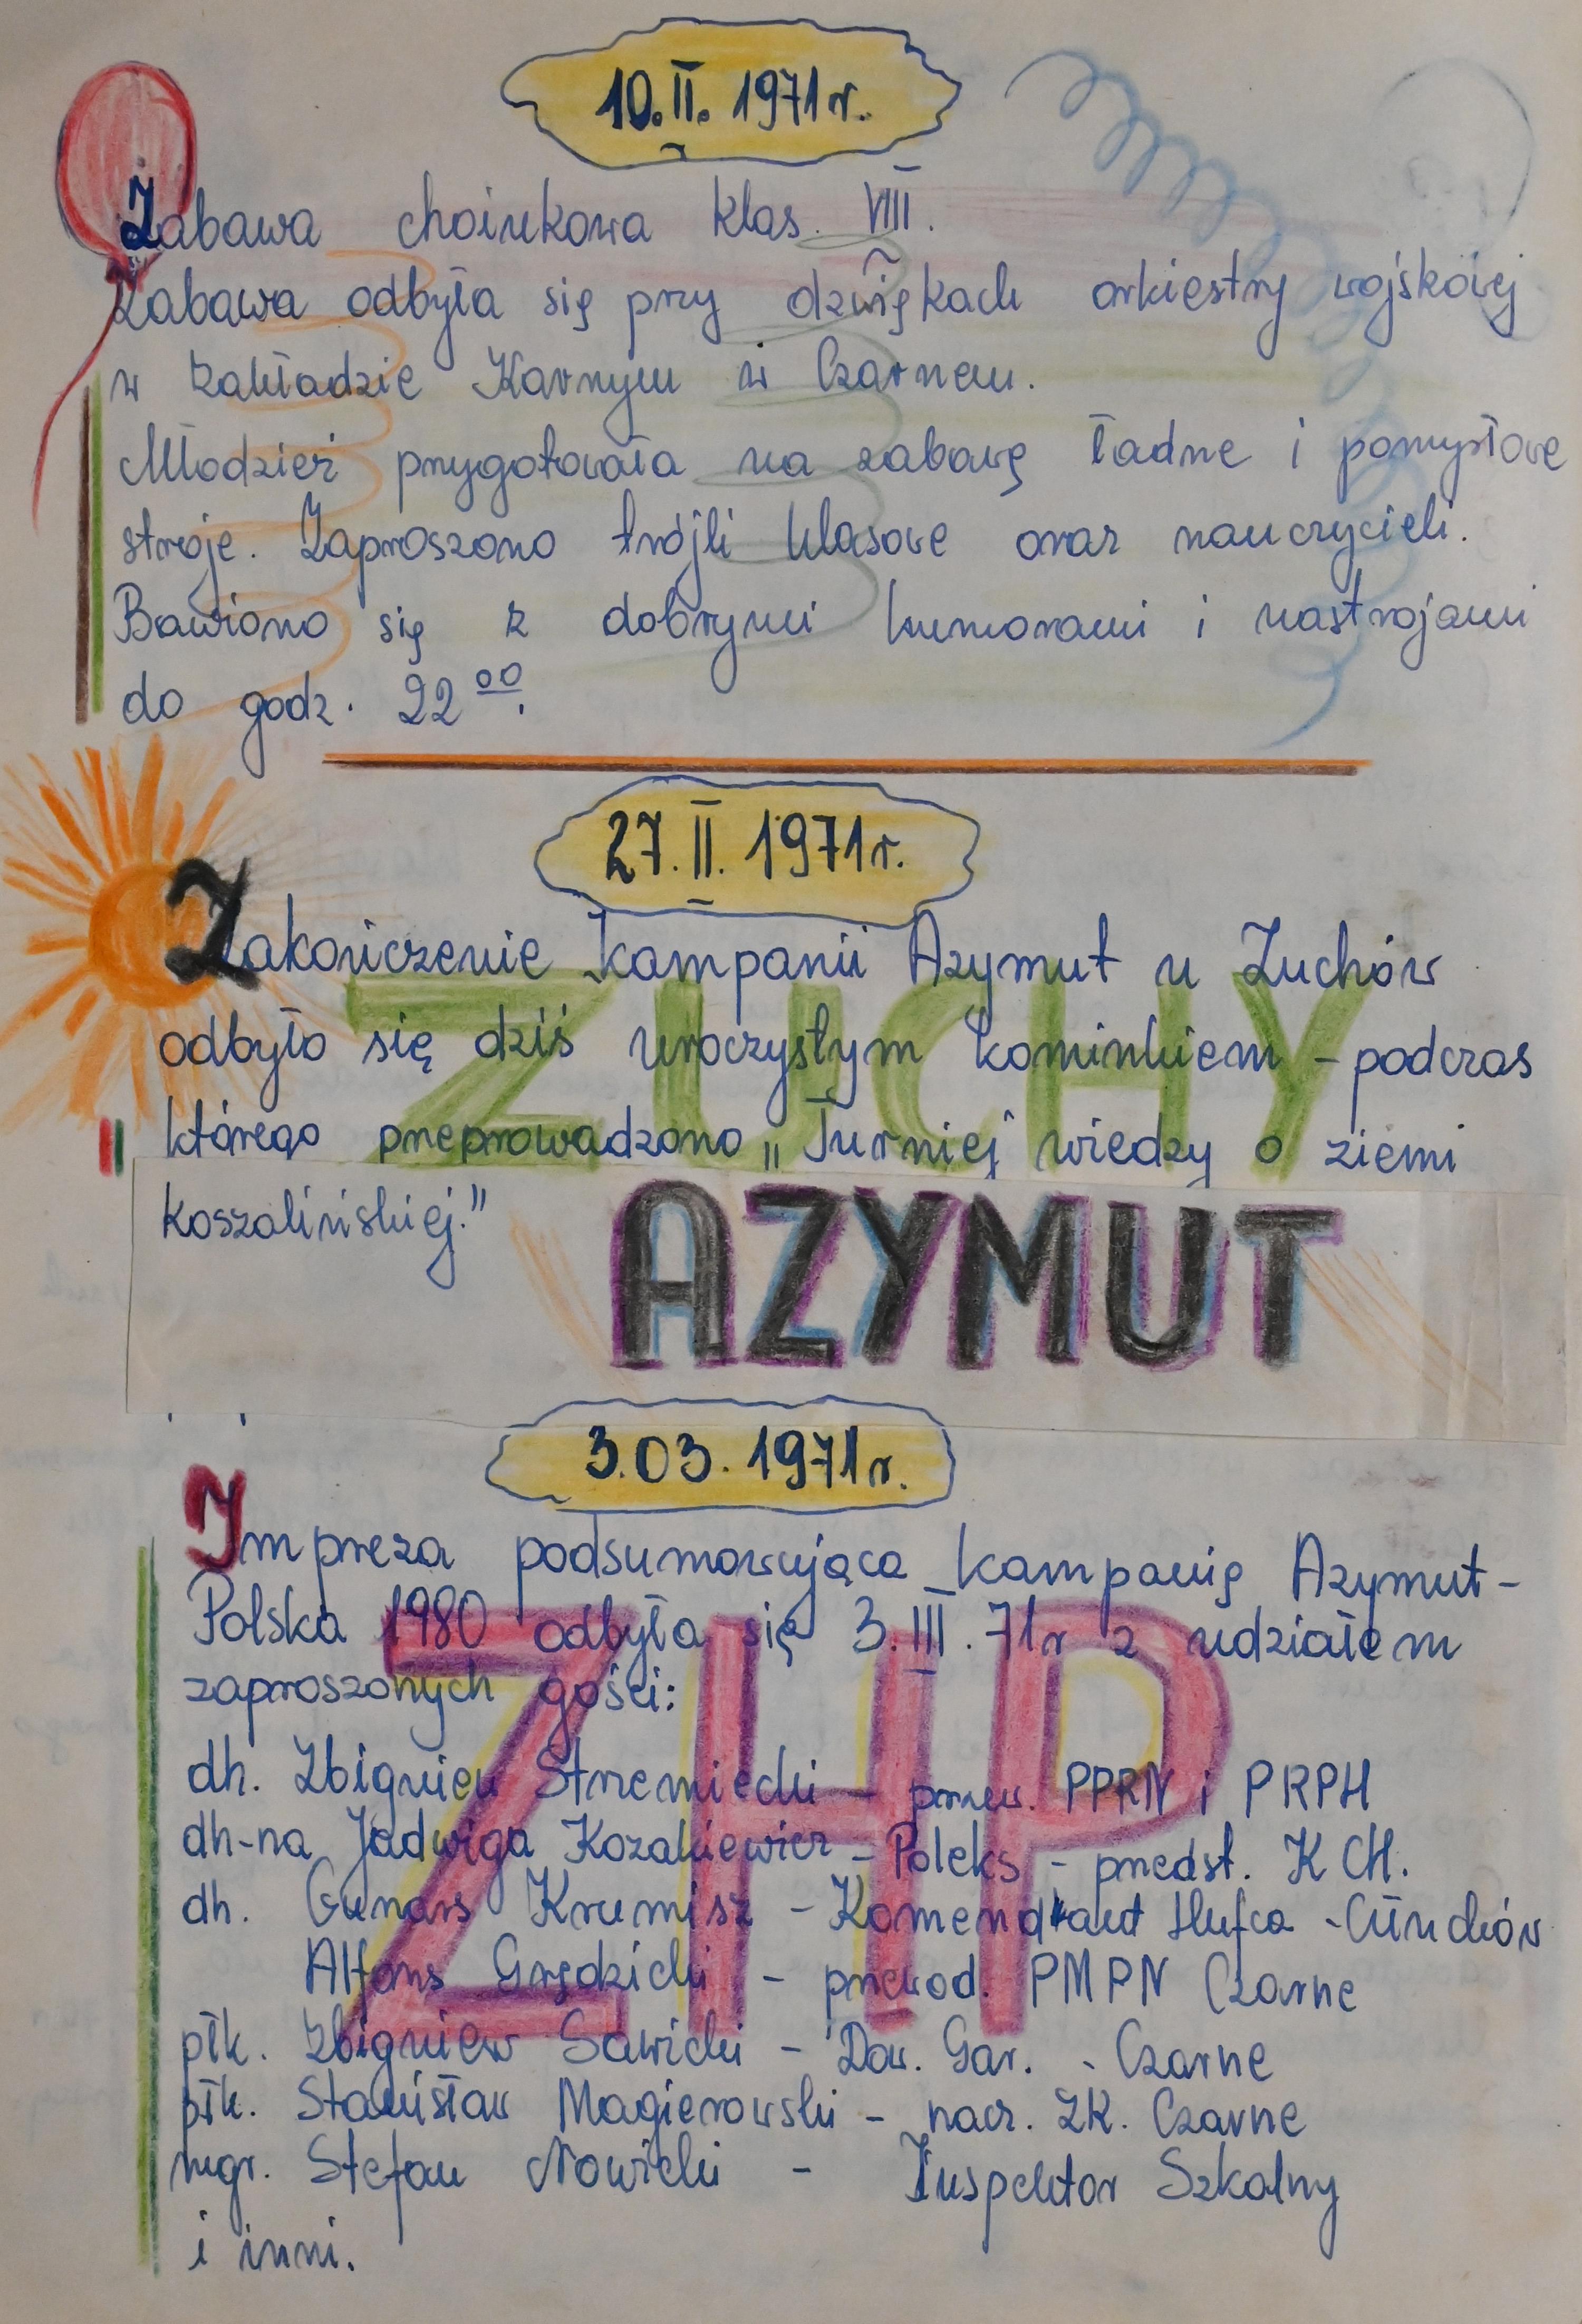 10.II. 1971r.
Zabawa choinkowa klas. VIII.
Zabawa odbyła się przy dzwiękach orkiestry wojskowej
w Zakładzie Karnym w Czarnem.
Młodzież przygotowała na zabawę ładne i pomysłowe
stroje. Zaproszono trójki klasowe oraz nauczycieli.
Bawiono się z dobrymi humorami i nastrojami
do godz. 22⁰⁰.
27.II. 1971r.
Zakończenie kampanii Azymut u Zuchów
odbyło się dziś uroczystym kominkiem - podczas
ZUCHY
którego przeprowadzono „Turniej wiedzy o ziemi
koszalińskiej."
AZYMUT
3.03. 1971r.
Impreza podsumowująca kampanię Azymut-
Polska 1980 odbyła się 3.III.71r z udziałem
zaproszonych gości:
ZHP
dh. Zbigniew Strzemiecki - przew. PPRN i PRPH
dh-na Jadwiga Kozakiewicz - Poleks - przedst. K CH.
dh. Gunars Krumisz - Komendant Hufca - Człuchów
Alfons Grędzicki - przewod. PMPN Czarne
płk. Zbigniew Sawicki - Dow. Gar. - Czarne
płk. Stanisław Magierowski - nacz. ZK. Czarne
mgr. Stefan Nowicki - Inspektor Szkolny
i inni.